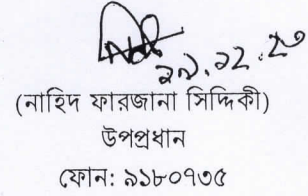 ২৯.১২.২৩
(নাহিদ ফারজানা সিদ্দিকী)
উপপ্রধান
ফোন: ৯১৮০৭৩৫